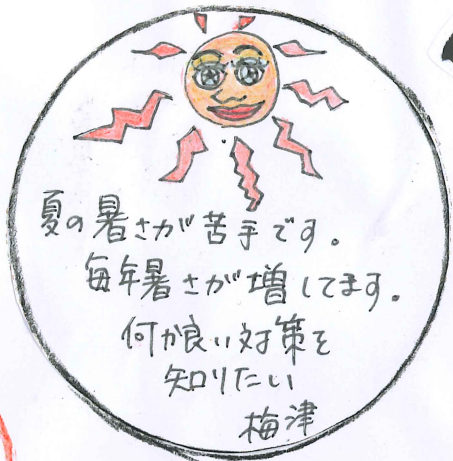 夏の暑さが苦手です。
毎年暑さが増してます。
何か良い対策を
知りたい
梅津